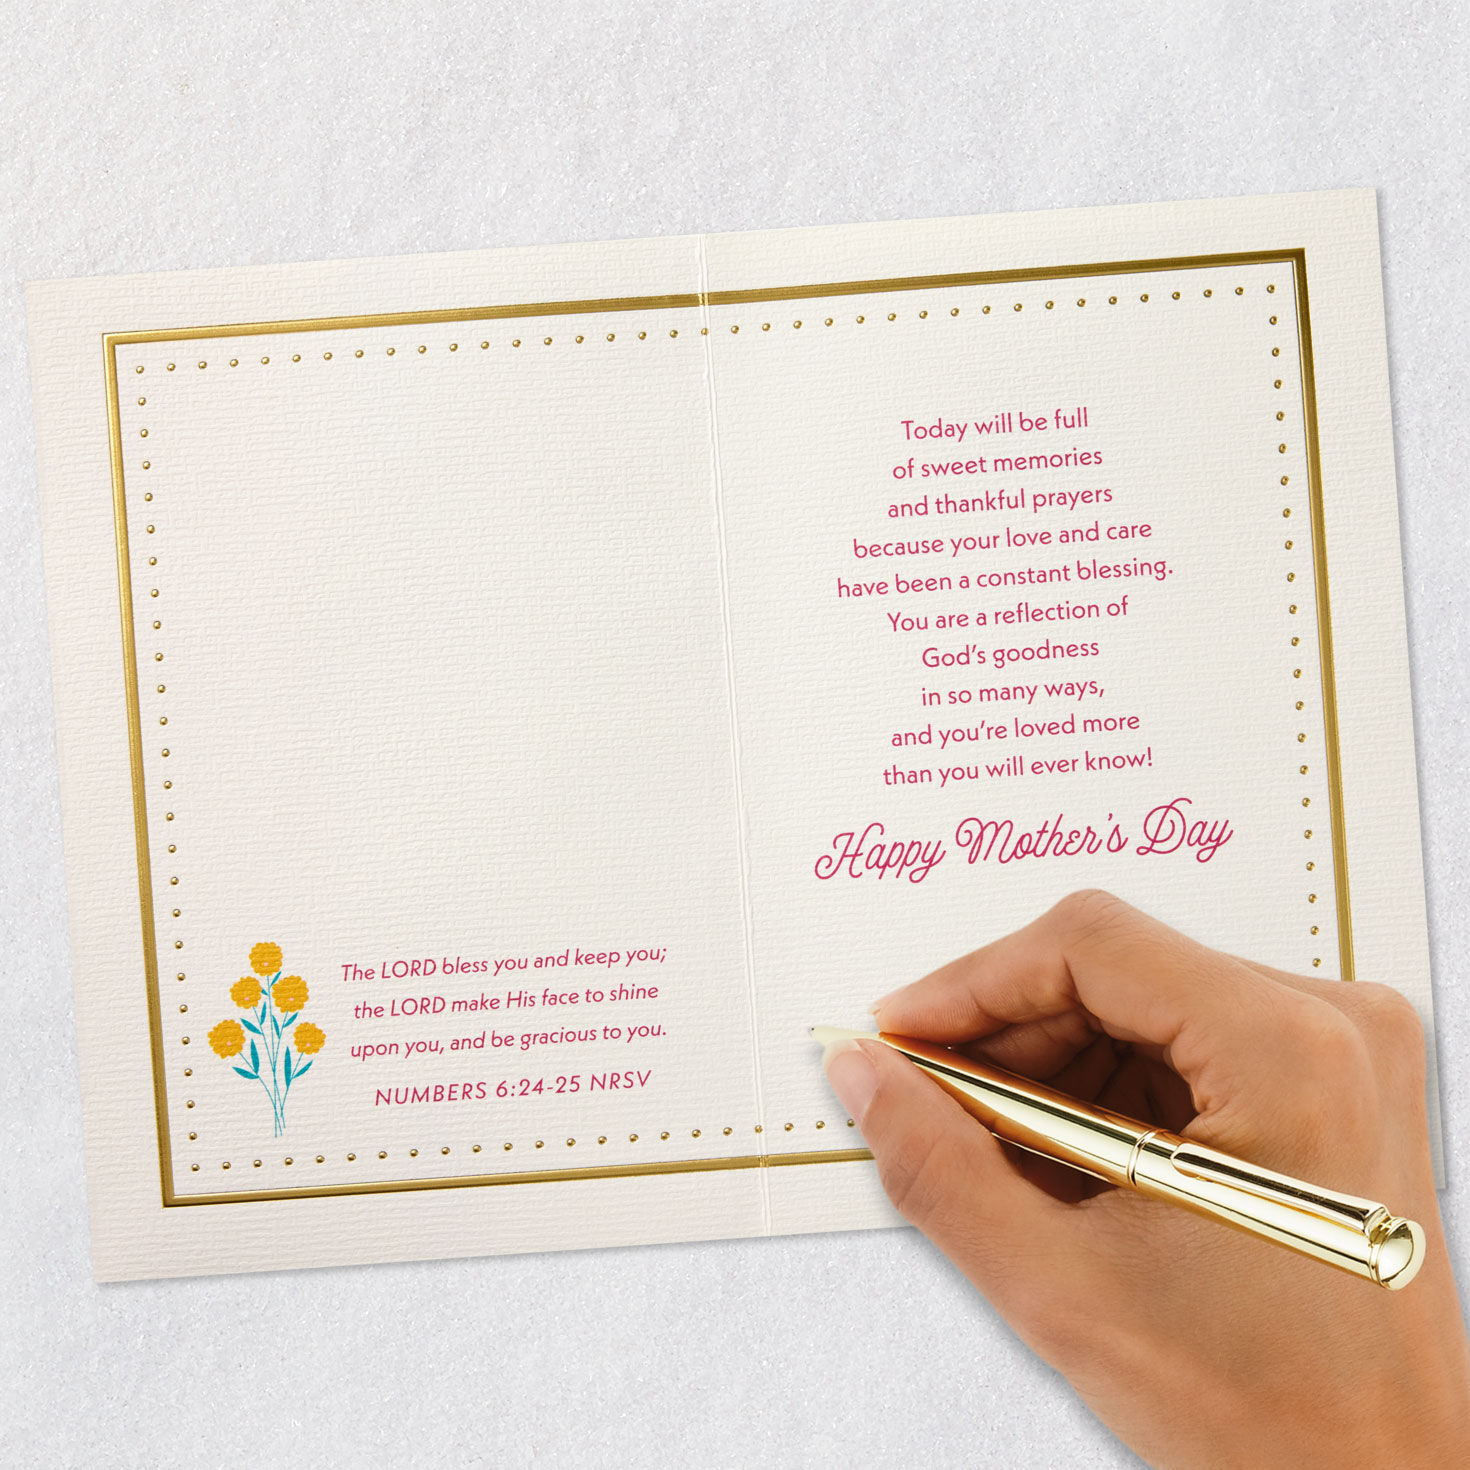 The LORD bless you and keep you;
the LORD make His face to shine
upon you, and be gracious to you.
NUMBERS 6:24-25 NRSV
Today will be full
of sweet memories
and thankful prayers
because your love and care
have been a constant blessing.
You are a reflection of
God's goodness
in so many ways,
and you're loved more
than you will ever know!
Happy Mother's Day